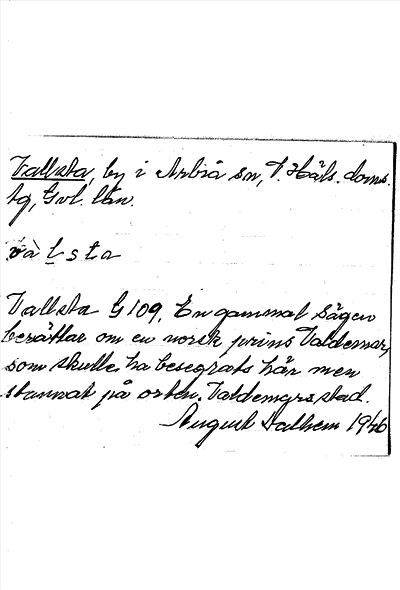 Vallsta, by i Arbrå sn, V. Häls. doms.
tg, Gvl. län.
vàḷsta
Vallsta G 109. En gammal sägen
berättar om en norsk prins Valdemar,
som skulle ha besegrats här men
stannat på orten. Valdemarsstad.
August Dalhem 1946